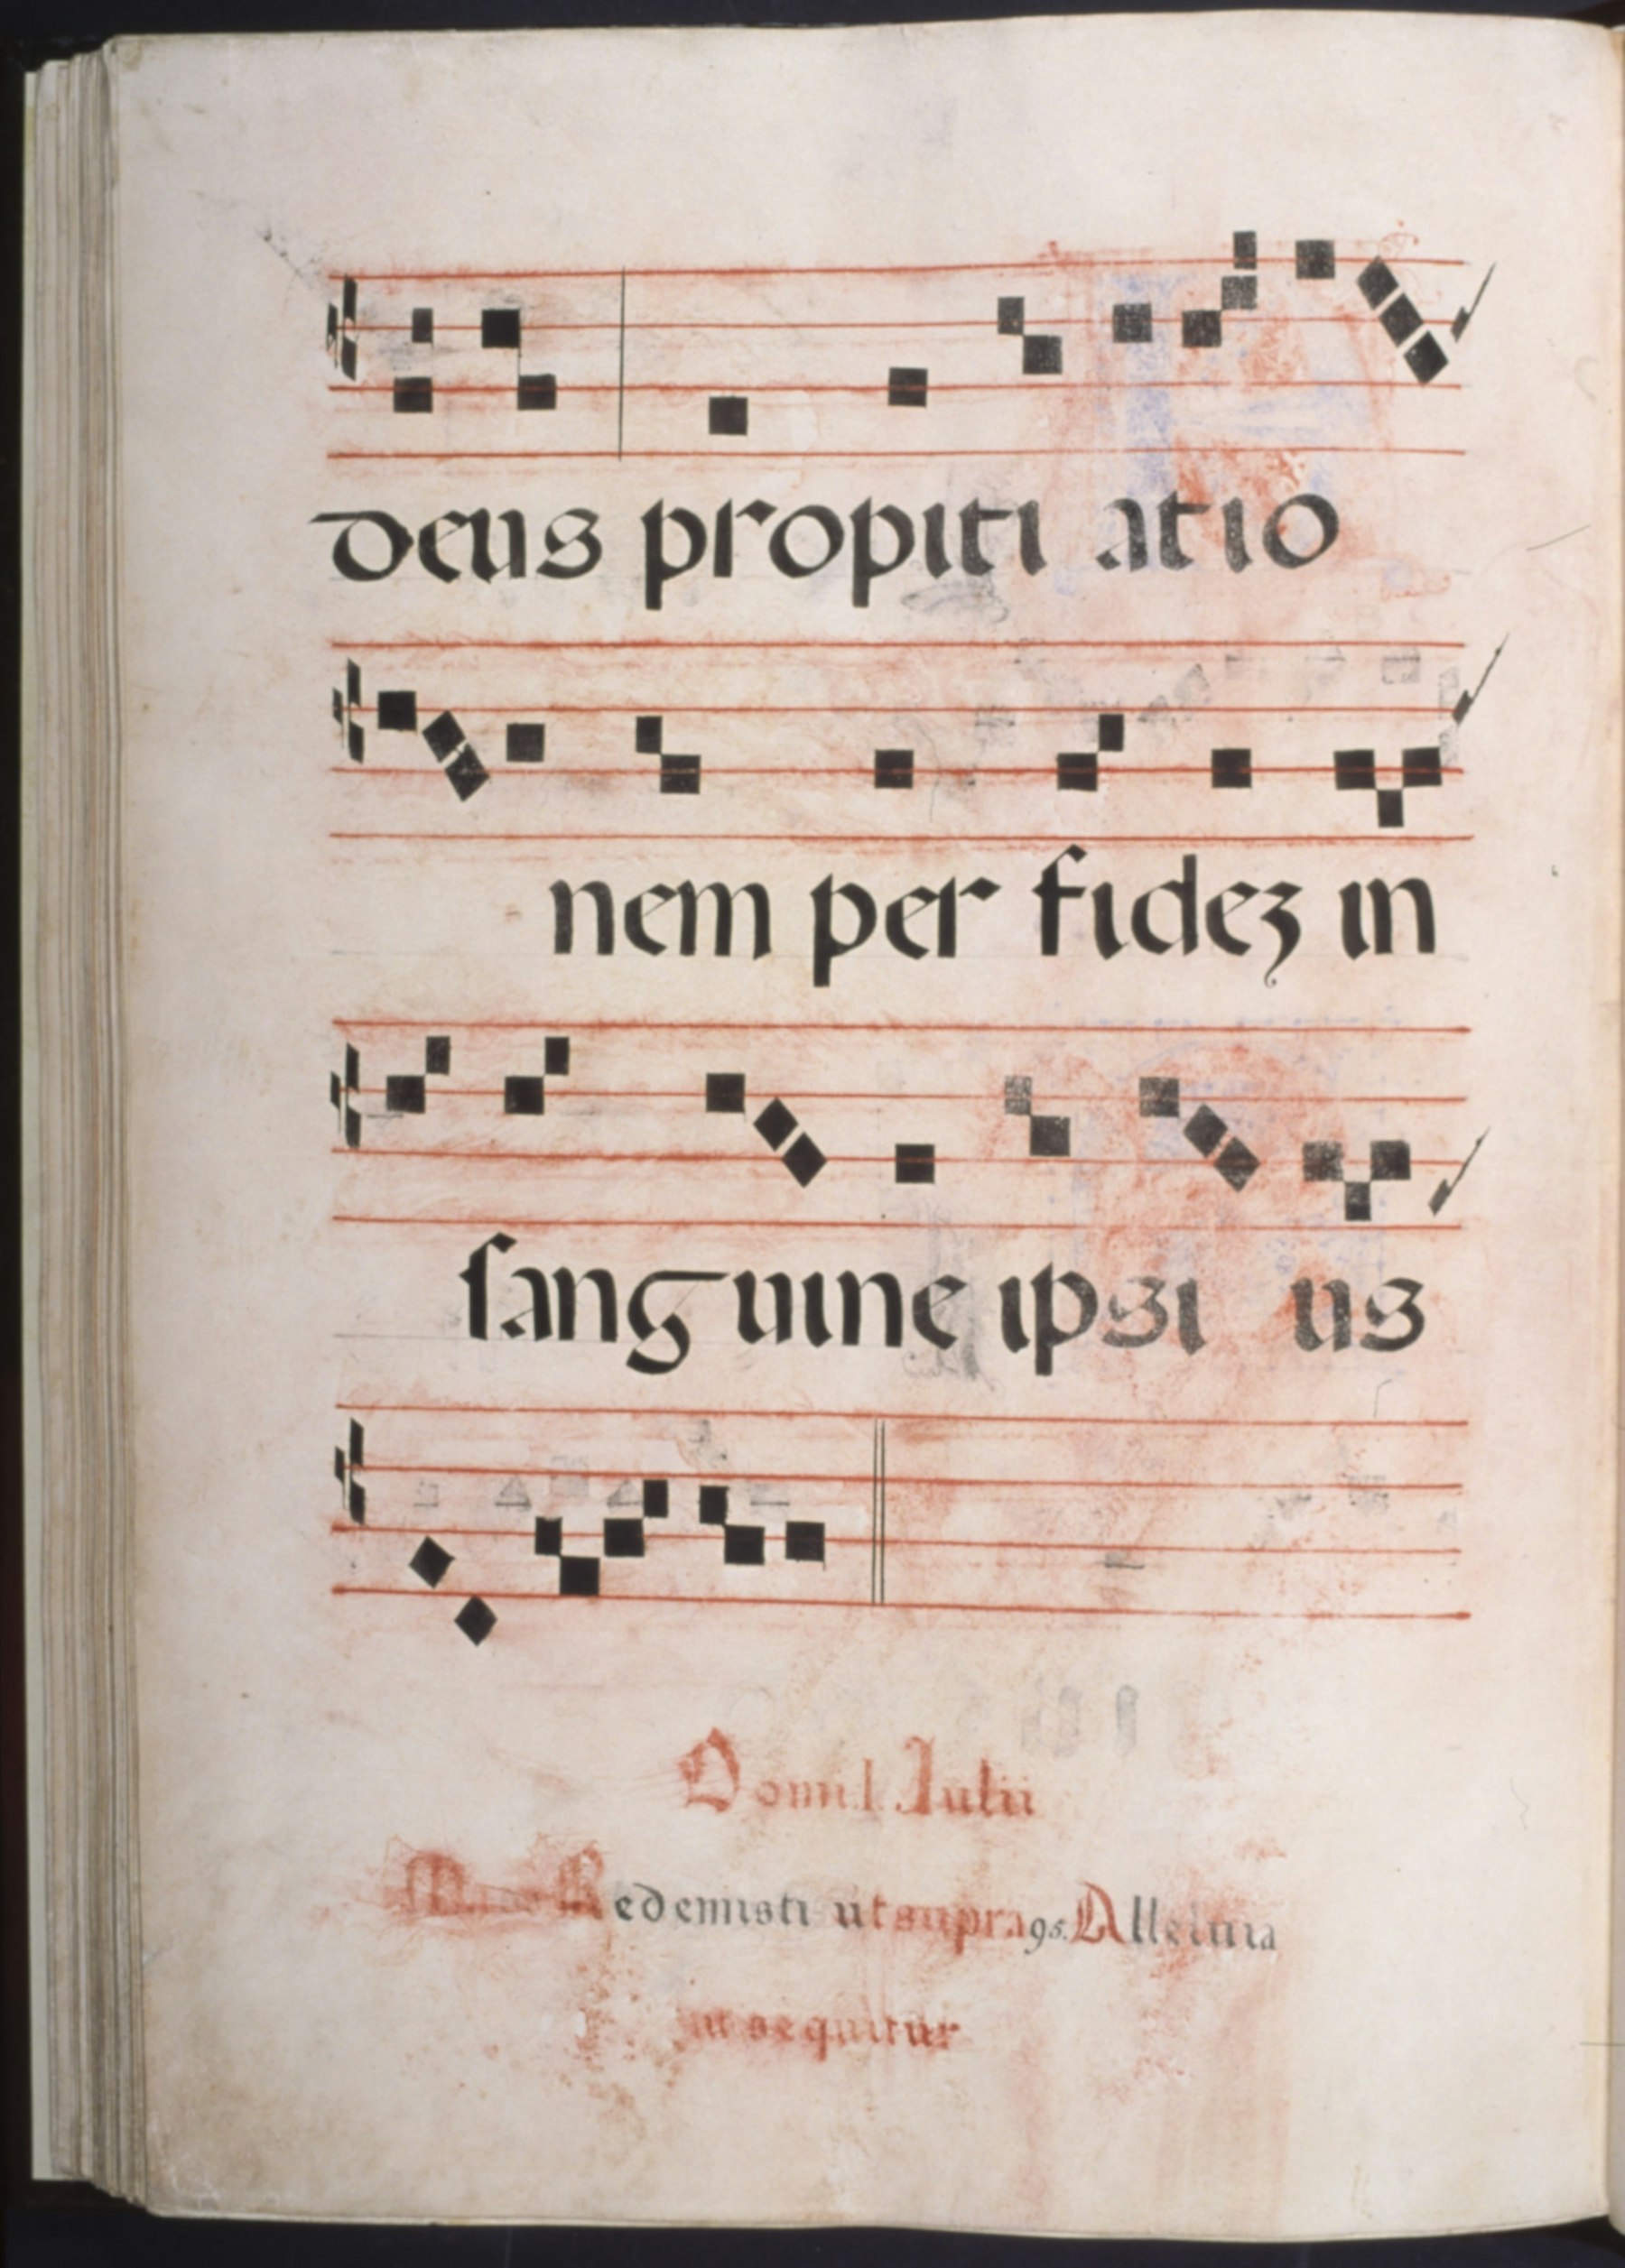 deus propiti atio
nem per fidez in
sanguine ipsi us
Domi.I. Iulii
Redemisti ut supra 95. Alleluia
ut sequitur